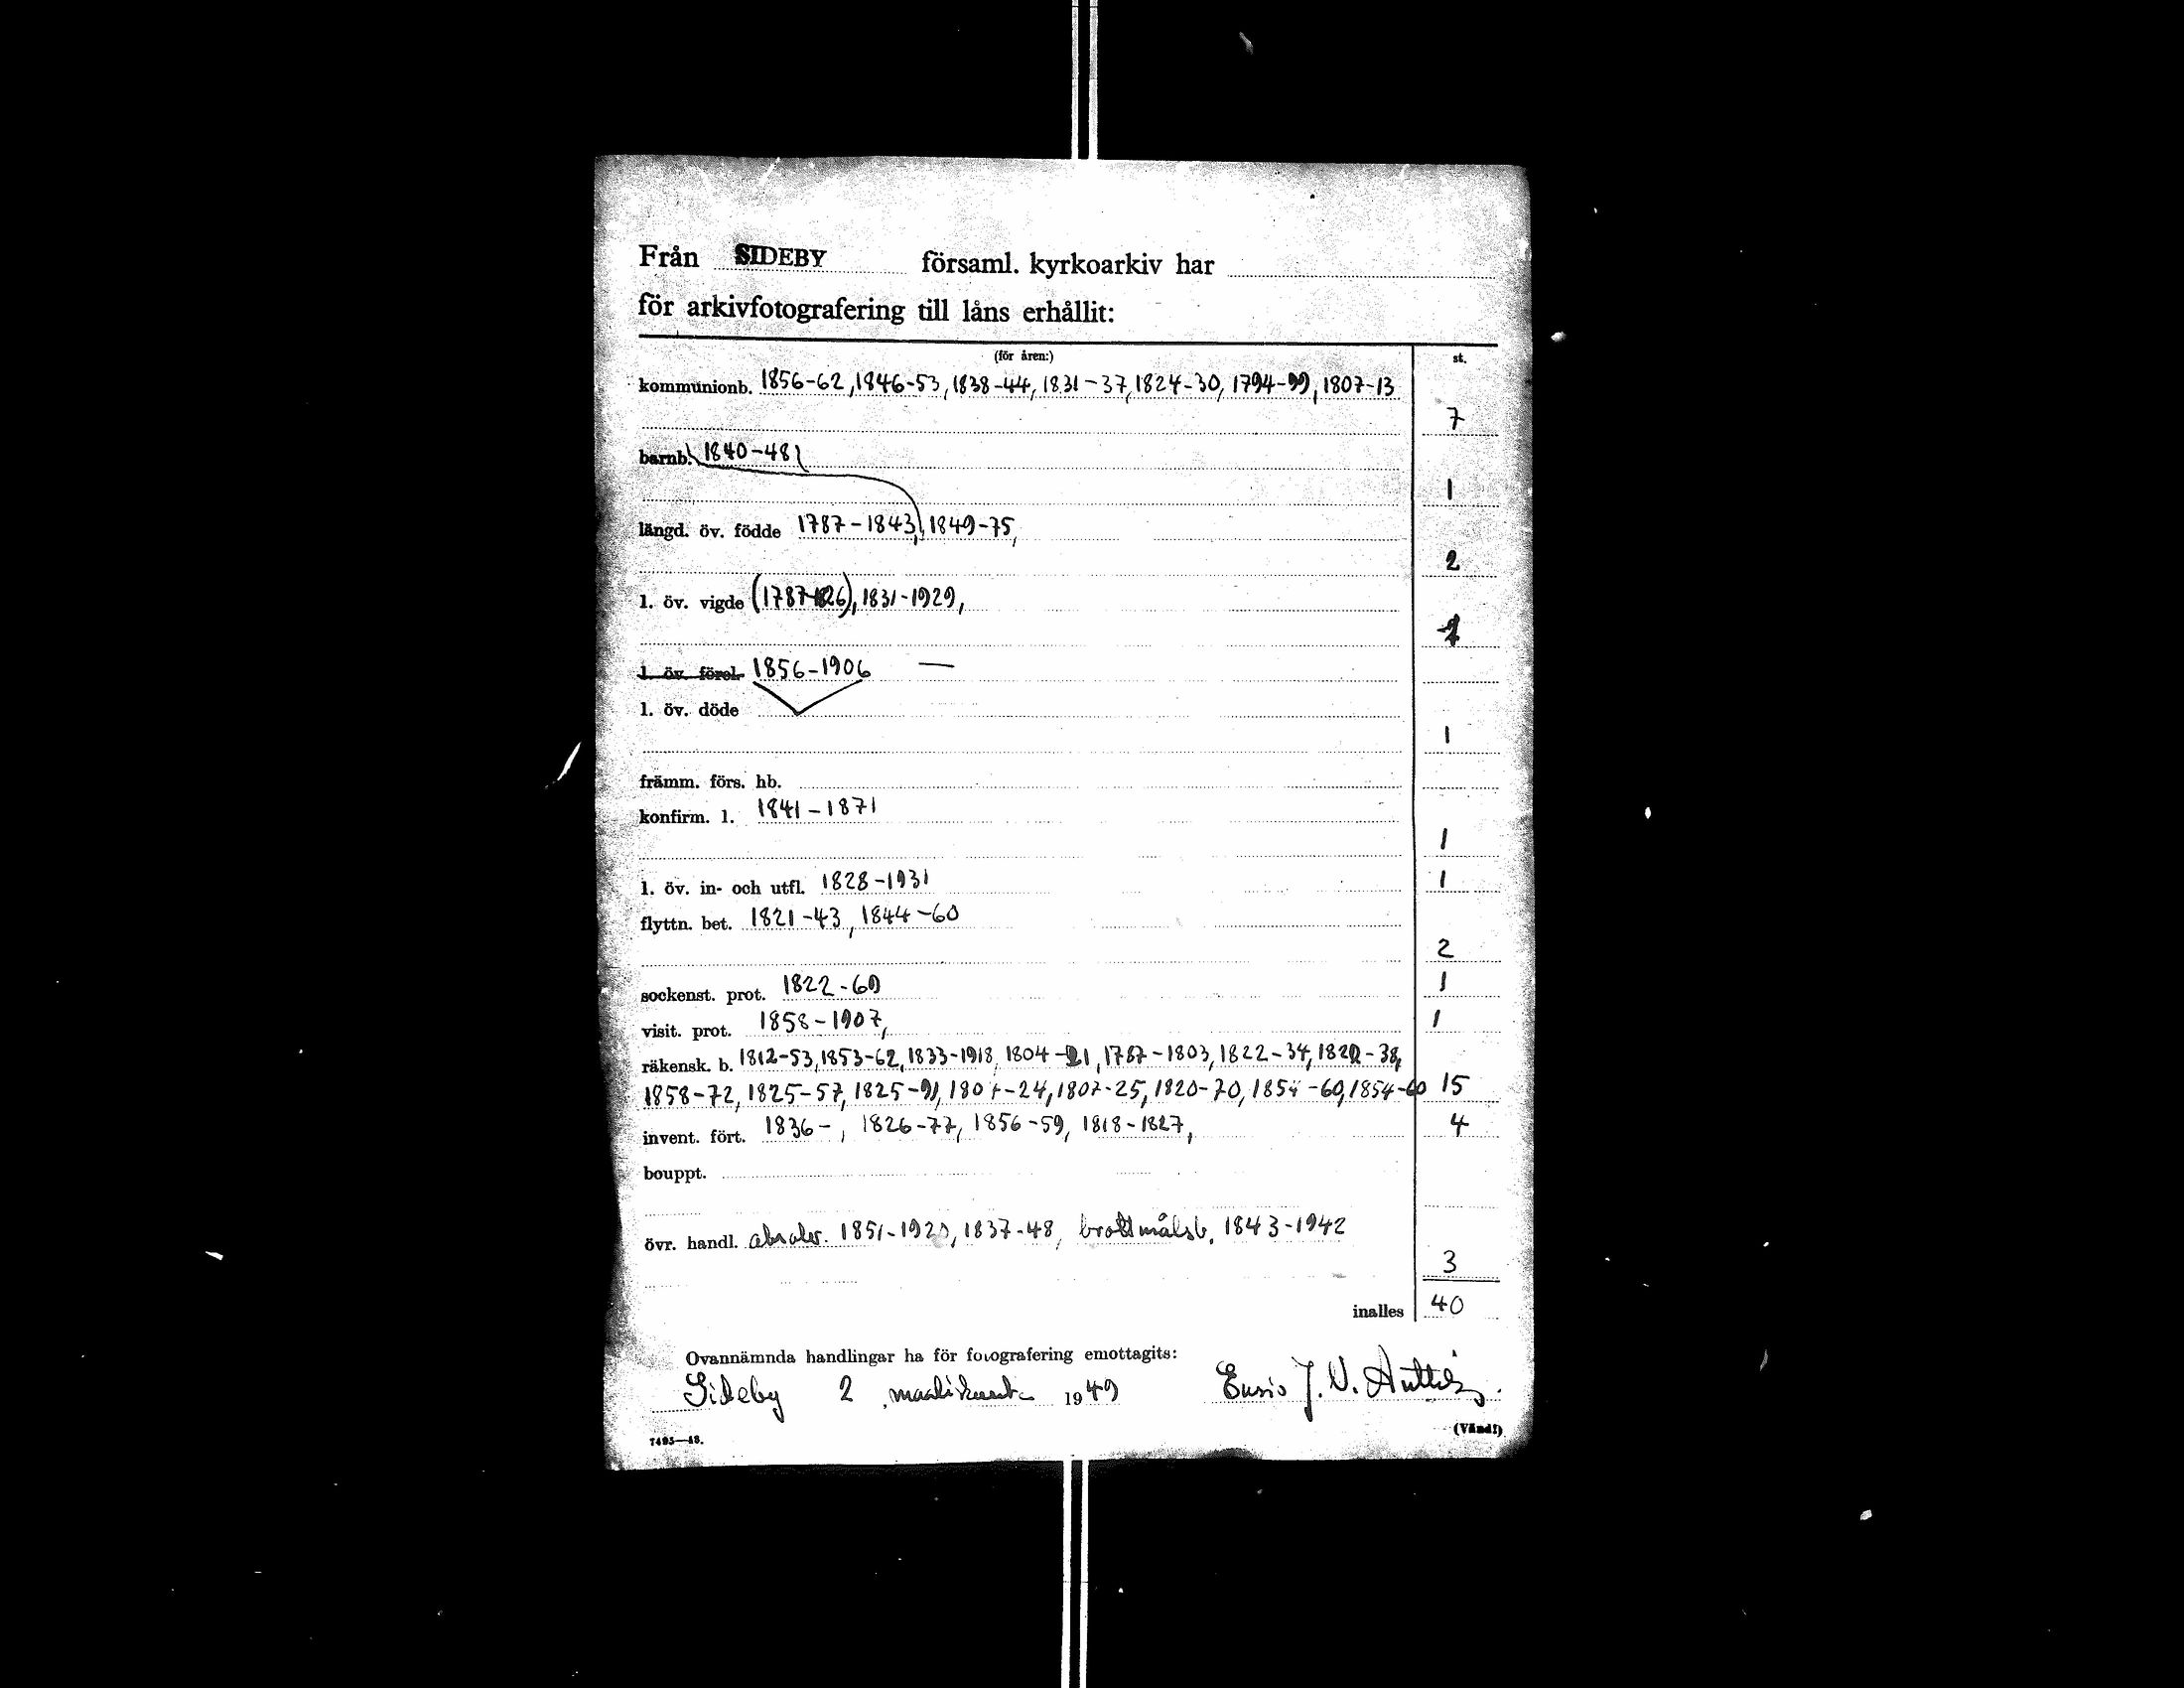 Från SIDEBY församl. kyrkoarkiv har
för arkivfotografering till låns erhållit:
(för åren:) st.
kommunionb. 1856-62, 1846-53, 1838-44, 1831-37, 1824-30, 1794-99, 1807-13
7
barnb. 1840-48
1
längd. öv. födde 1787-1843, 1849-75,
2
l. öv. vigde (1787-1826), 1831-1929,
1
l. öv. förel. 1856-1906 —
l. öv. döde
1
främm. förs. hb.
konfirm. l. 1841-1871
1
l. öv. in- och utfl. 1828-1931 1
flyttn. bet. 1821-43, 1844-60
2
sockenst. prot. 1822-69 1
visit. prot. 1858-1907, 1
räkensk. b. 1812-53, 1853-62, 1833-1918, 1804-21, 1787-1803, 1822-34, 1822-38,
1858-72, 1825-57, 1825-91, 1807-24, 1807-25, 1820-70, 1854-60, 1854-60 15
invent. fört. 1836- , 1826-77, 1856-59, 1818-1827, 4
bouppt.
övr. handl. 1851-1920, 1837-48, brottmålsb. 1843-1942
3
inalles 40
Ovannämnda handlingar ha för fotografering emottagits:
Sideby 2 maalisk 1949 J. V.
7495—48. (Vänd!)